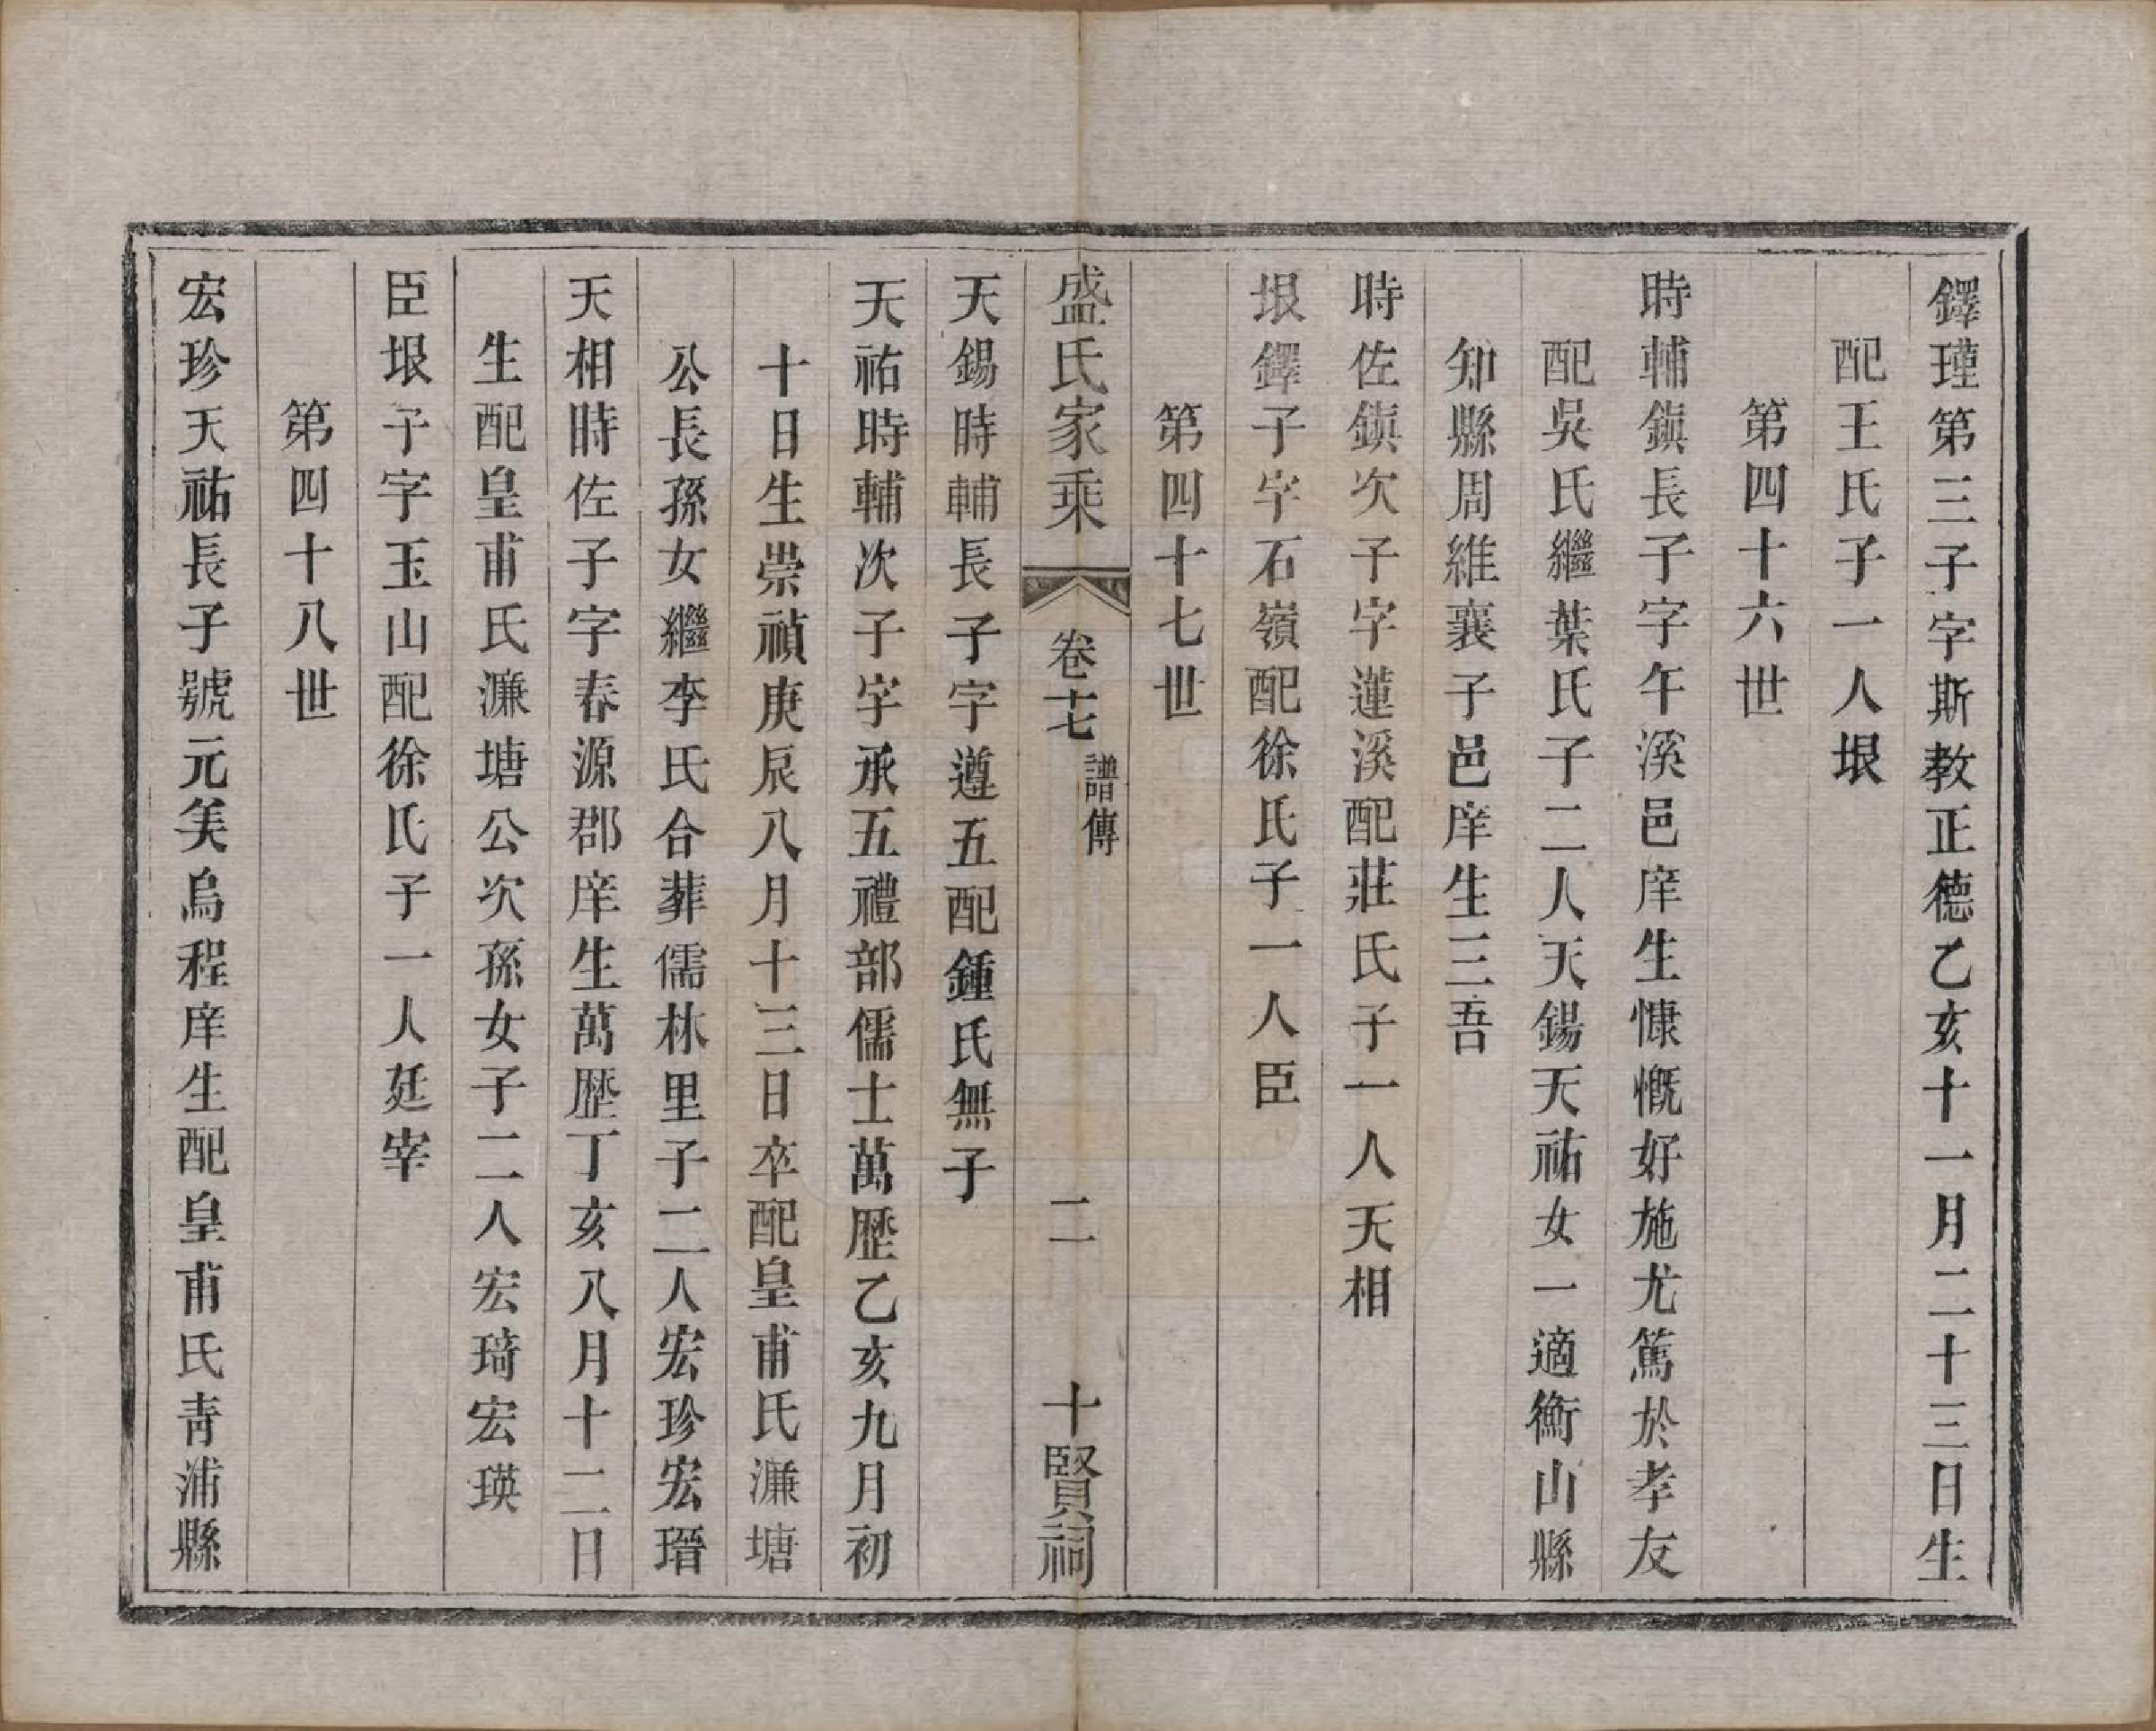 鐸瑾第三子字斯教正德乙亥十一月二十三日生
配王氏子一人垠
第四十六世
時輔鎮長子字午溪邑庠生慷慨好施尤篤於孝友
配吳氏繼葉氏子二人天錫天祐女一適衡山縣
知縣周維襄子邑庠生三吾
時佐鎮次子字蓮溪配莊氏子一人天相
垠鐸子字石嶺配徐氏子一人臣
第四十七世
盛氏家乘 卷十七 譜傳 二 十賢祠
天錫時輔長子字遵五配鍾氏無子
天祐時輔次子字承五禮部儒士萬歷乙亥九月初
十日生崇禎庚辰八月十三日卒配皇甫氏濂塘
公長孫女繼李氏合葬儒林里子二人宏珍宏瑨
天相時佐子字春源郡庠生萬歷丁亥八月十二日
生配皇甫氏濂塘公次孫女子二人宏琦宏瑛
臣垠子字玉山配徐氏子一人廷宰
第四十八世
宏珍天祐長子號元美烏程庠生配皇甫氏青浦縣